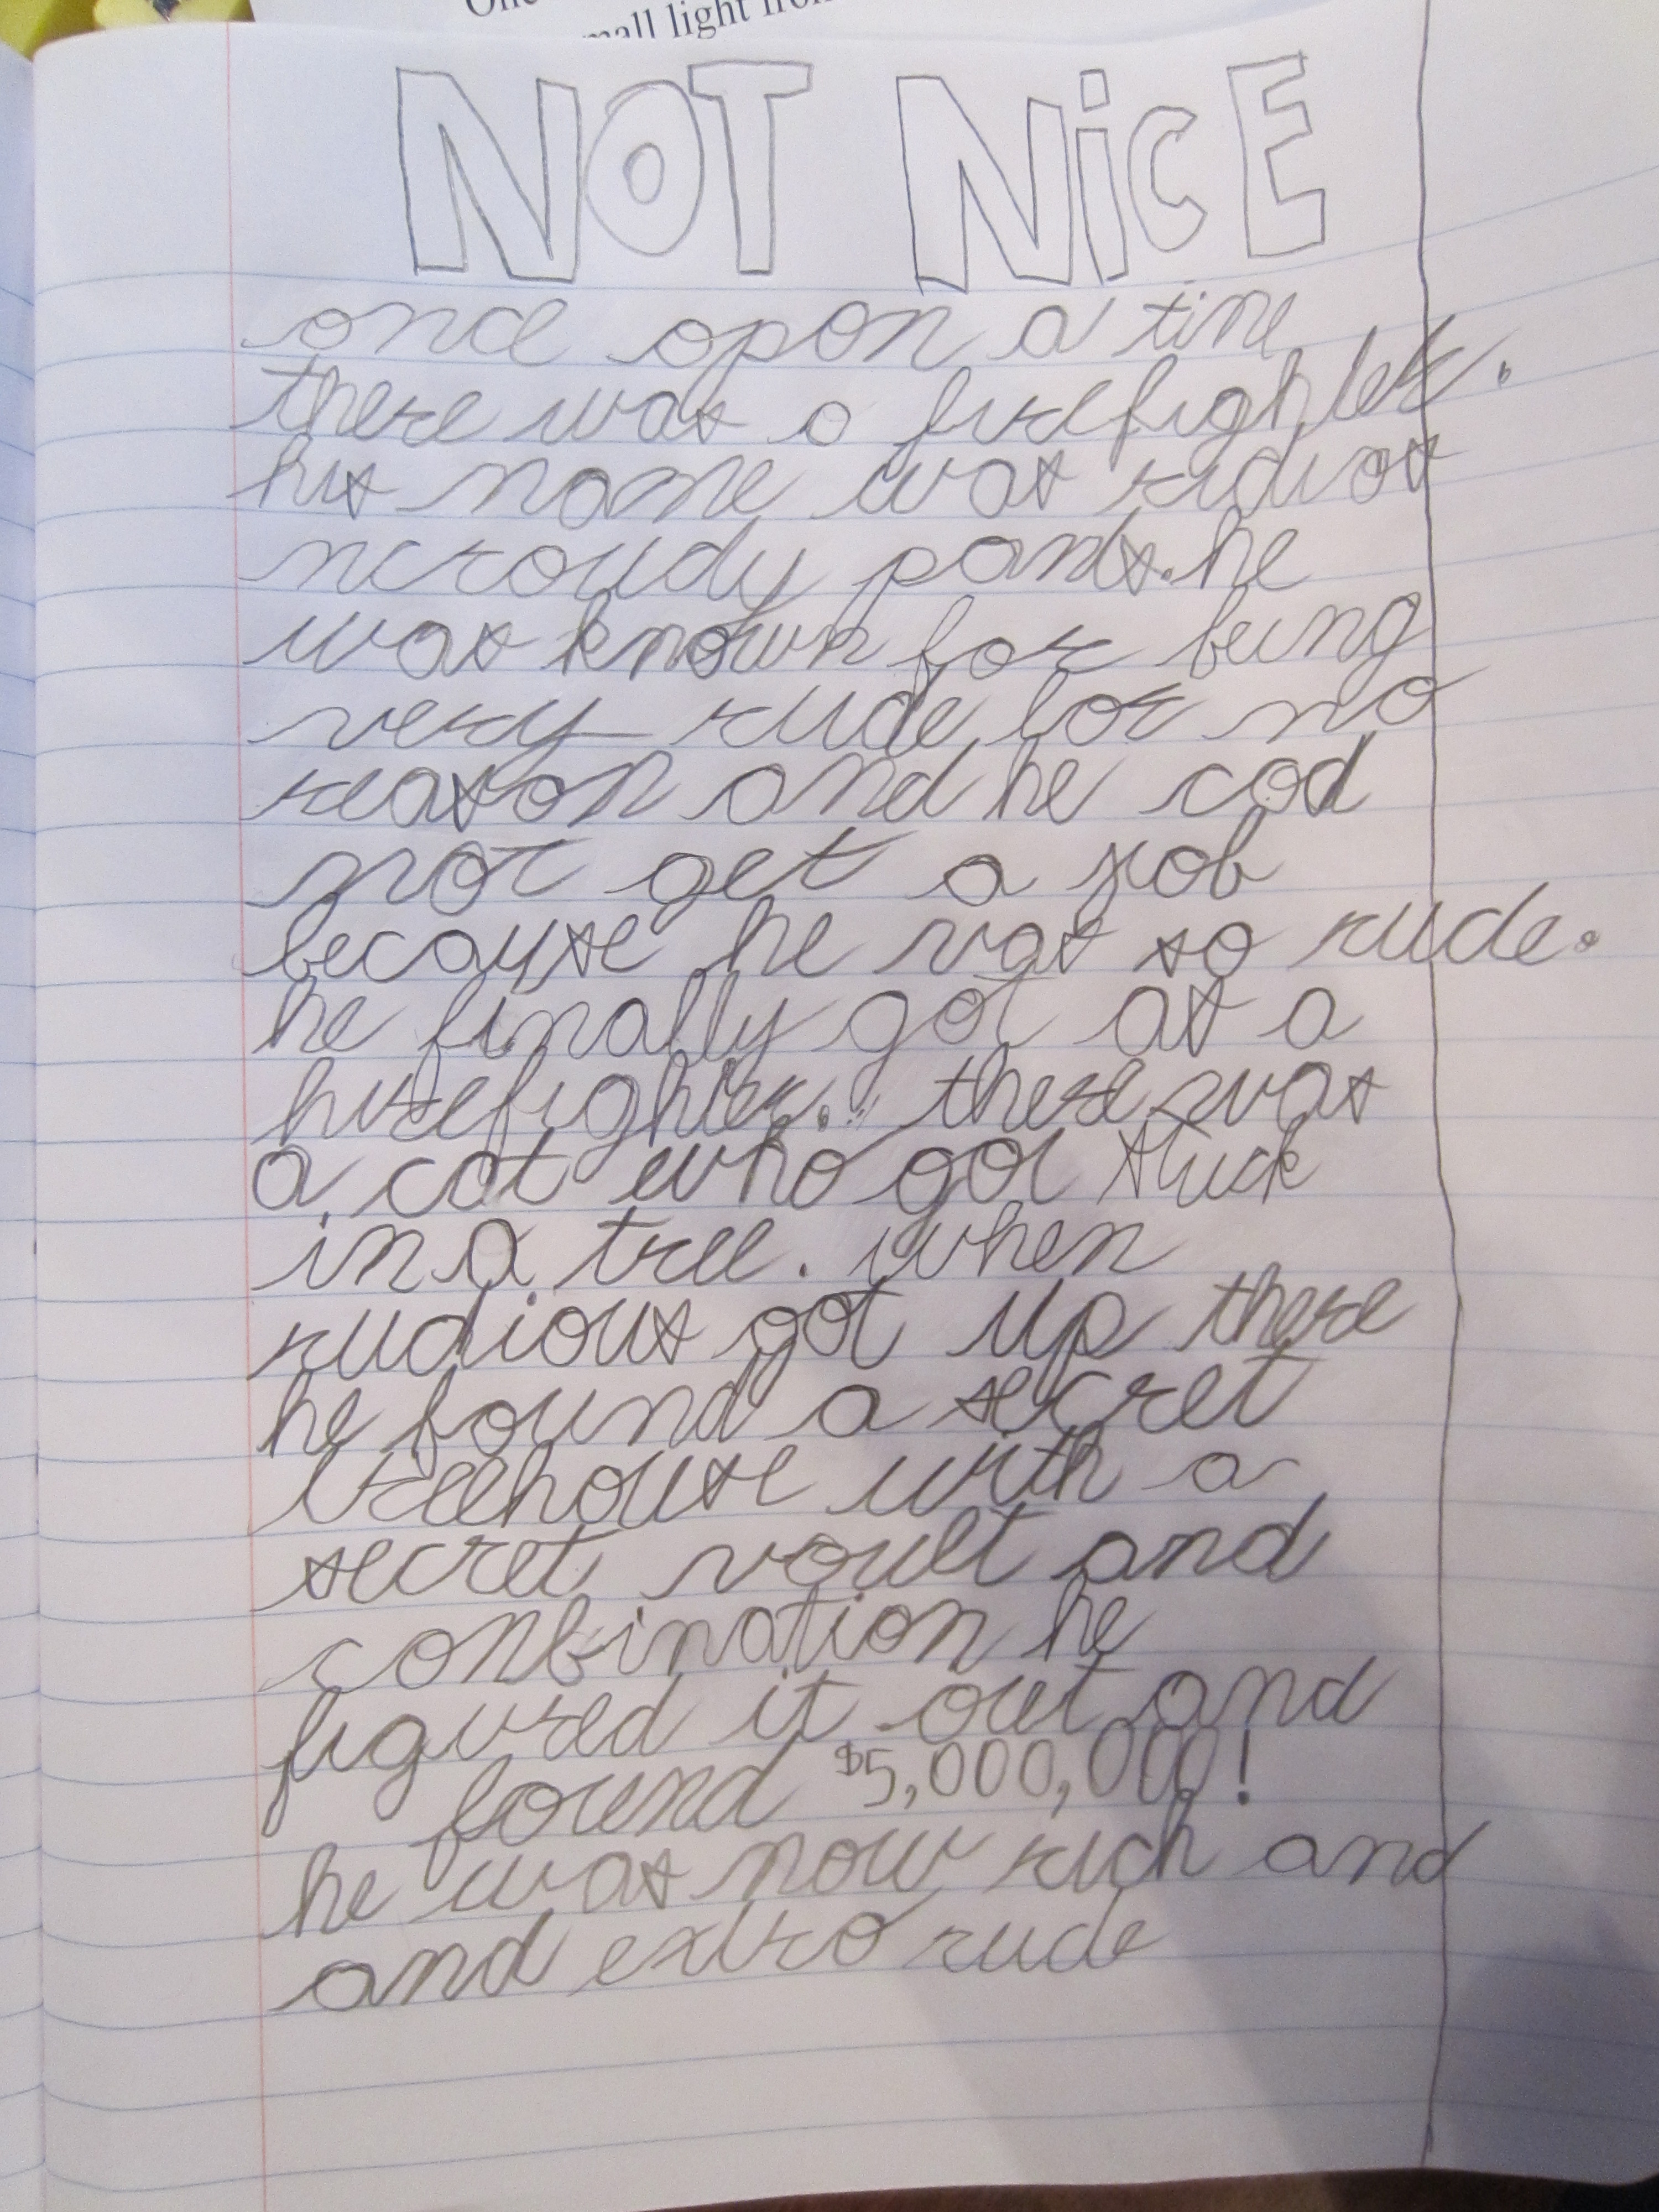 mall light fro
NOT NiCE
once opon a time
there was a firefighter.
his name was rudios
mcroudy pants. he
was known for being
very rude for no
reason and he cod
not get a job
because he was so rude.
he finally got as a
firefighter. there was
a cat who got stuck
in a tree. when
rudious got up there
he found a secret
treehouse with a
secret voult and
conbination he
figured it out and
found $5,000,000!
he was now rich and
and extra rude